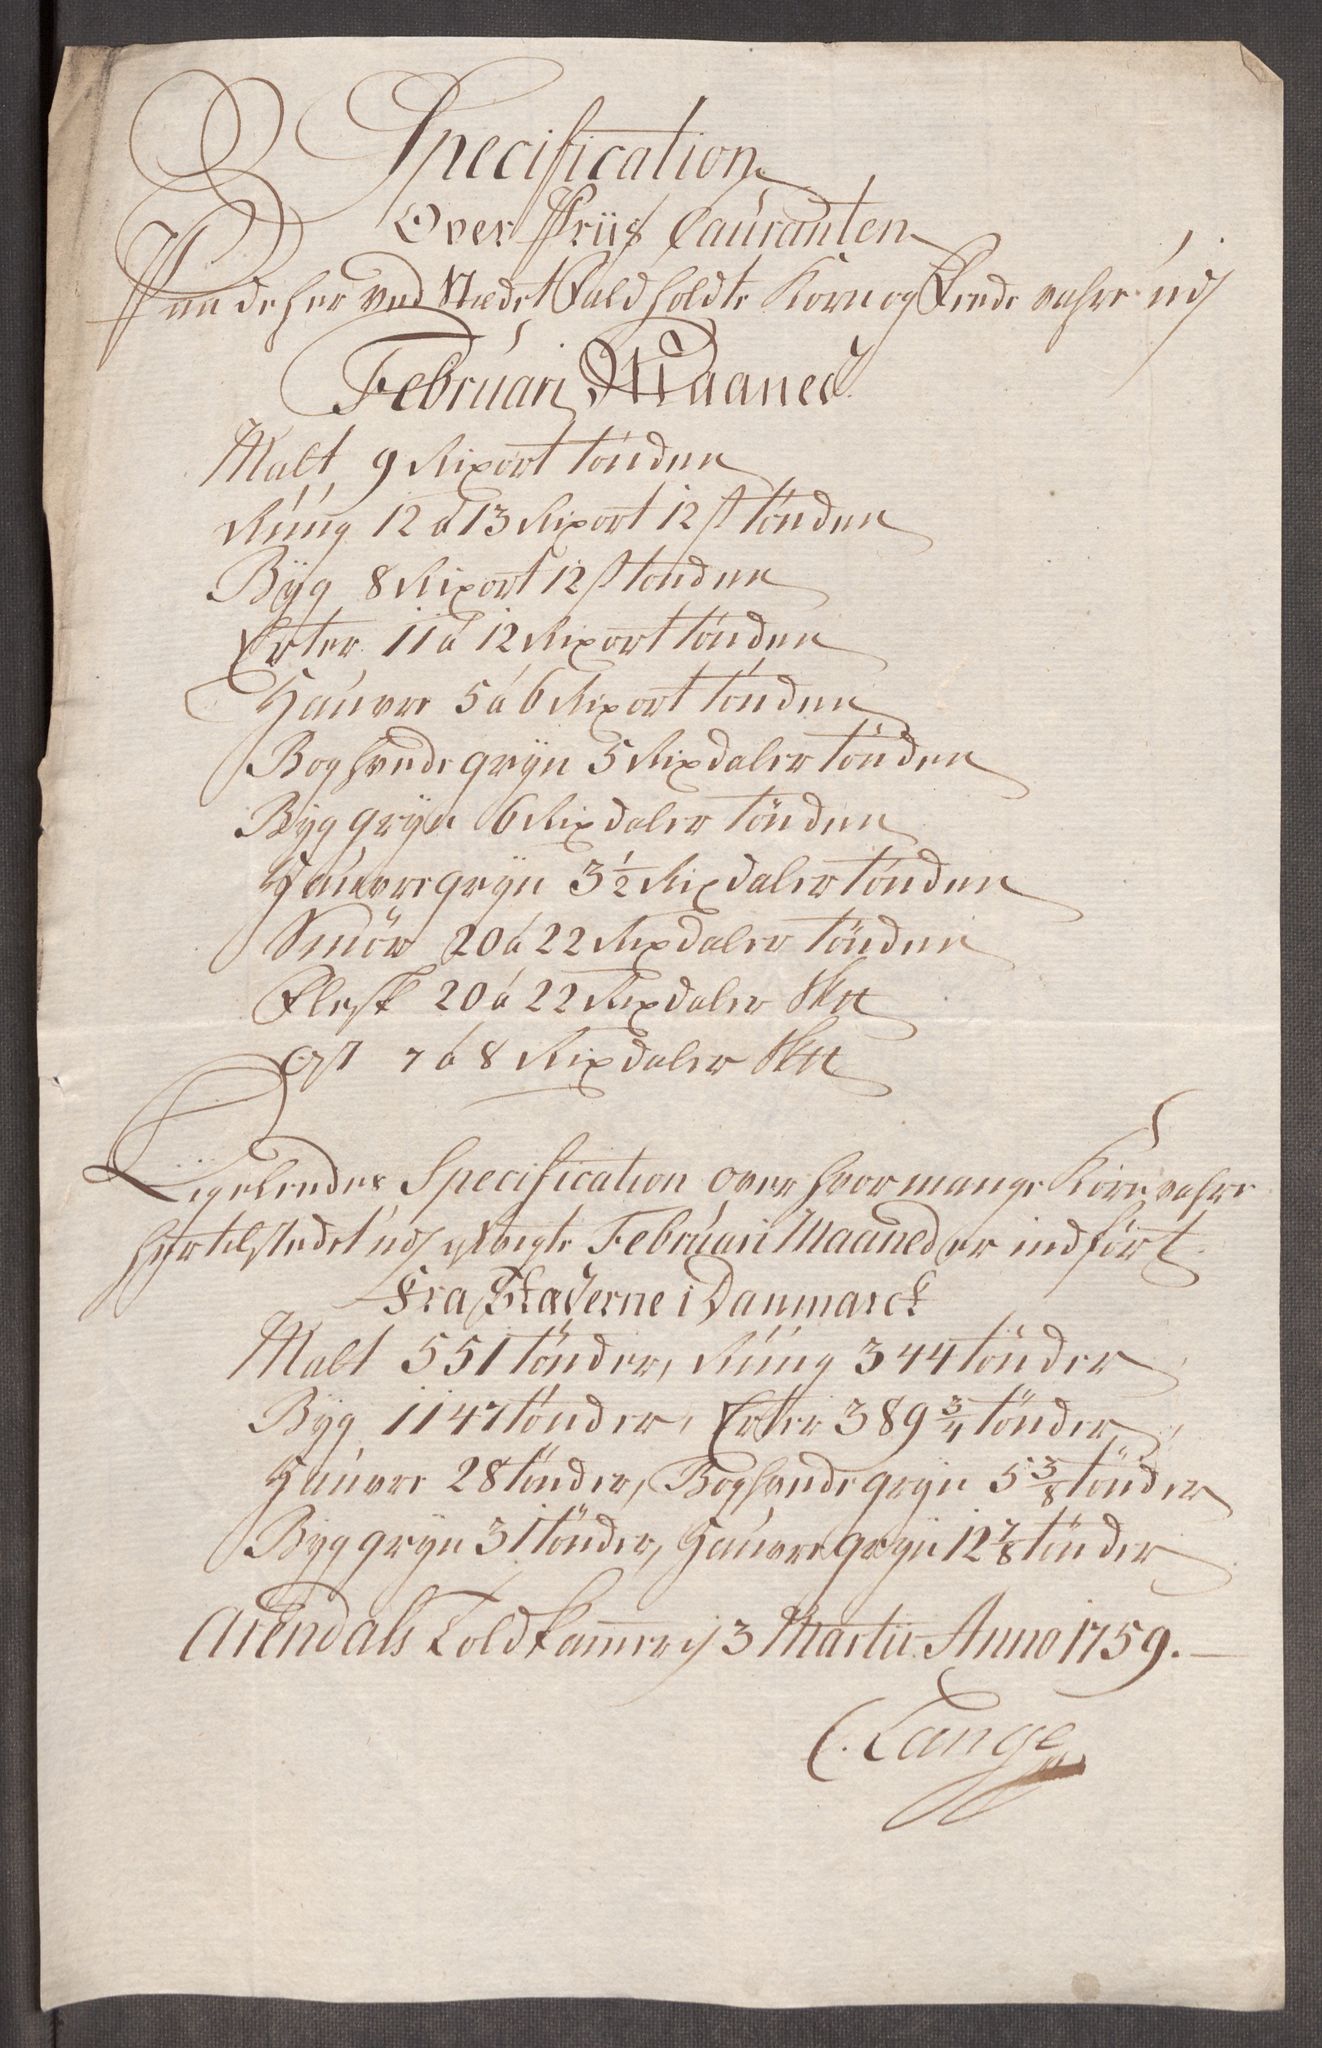 Specification
Over Priis Couranten
Paa de her ved Stædet Fald holdte Korn og Fede vahre udj
Februari Maaned
Malt 9 Rixort tönden
Rúúg 12 á 13 Rixort 12 s tönden
Bÿg 8 Rixort 12 s tönden
Erter 11 á 12 Rixort tönden
Haúvre 5 á 6 Rixort tönden
Boghvedegrÿn 5 Rixdaler tönden
Bÿggrÿn 6 Rixdaler tönden
Haúvregrÿn 3 1/2 Rixdaler tönden
Smör 20 á 22 Rixdaler tönden
Flesk 20 á 22 Rixdaler
Ost 7 á 8 Rixdaler
Ligeleedes Specification over hvor mange Korn vahre
her til stædet udj Februari Maaned er indfört
Fra Stæderne i Danmarck
Malt 551 tönder, Rúúg 344 tönder
Bÿg 1147 tönder, Erter 389 3/4 tönder,
Haúvre 28 tönder, Boghvedegrÿn 5 3/8 tönder
Bÿggrÿn 31 tönder, Haúvregrÿn 12 7/8 tönder
Arendals Toldkammer dj 3 Martii Anno 1759.
C. Lange